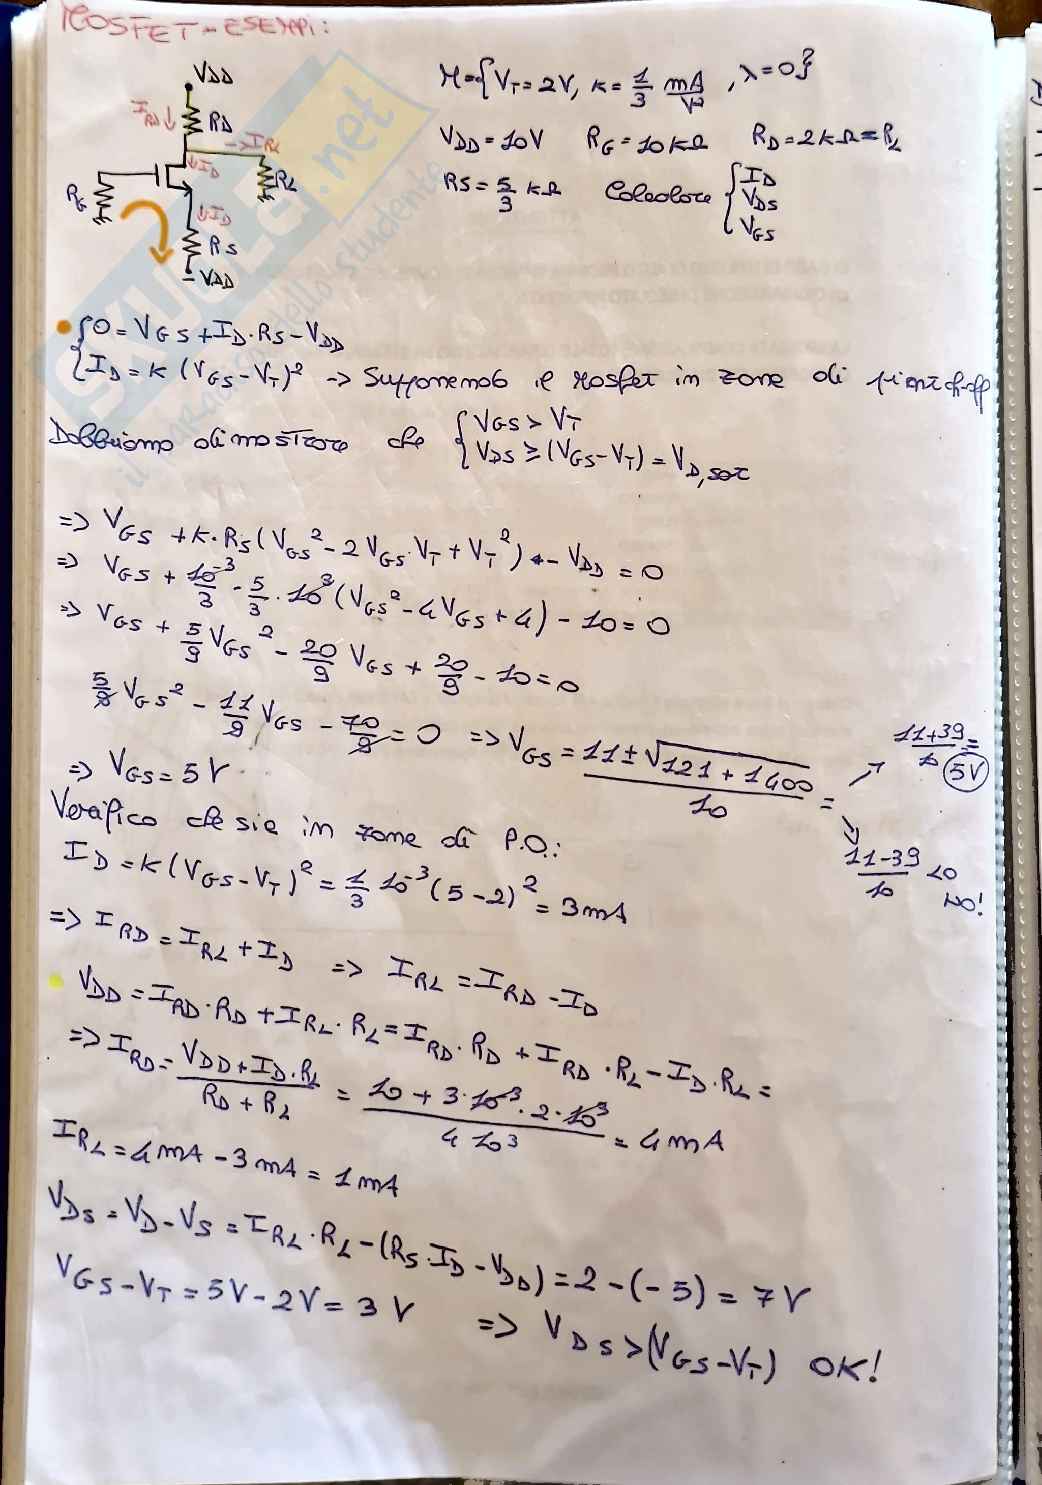 MOSFET - ESEMPI:
VDD
IRD ↓ RD
→ IRL
↓ ID RL
RG
↓ ID
RS
-VDD
M={VT=2V, K=1/3 mA/V², λ=0}
VDD=10V RG=10KΩ RD=2KΩ=RL
RS=5/3 KΩ Calcolare { ID VDS VGS
{ 0=VGS+ID·RS-VDD
ID=K (VGS-VT)² → Supponendo il Mosfet in zona di pinch-off
Dobbiamo dimostrare che { VGS > VT
VDS ≥ (VGS-VT) = VD,sat
=> VGS + K·RS (VGS² - 2VGS·VT + VT²) - VDD = 0
=> VGS + 10⁻³/3 · 5/3 · 10³ (VGS² - 4VGS + 4) - 10 = 0
=> VGS + 5/9 VGS² - 20/9 VGS + 20/9 - 10 = 0
5/9 VGS² - 11/9 VGS - 70/9 = 0 => VGS = 11±√121+1400 / 10 =
11+39/10 = 5V
11-39/10 <0 NO!
=> VGS = 5V
Verifico che sia in zona di P.O.:
ID = K (VGS-VT)² = 1/3 10⁻³ (5-2)² = 3mA
=> IRD = IRL + ID => IRL = IRD - ID
VDD = IRD·RD + IRL·RL = IRD·RD + IRD·RL - ID·RL =
=> IRD = VDD+ID·RL / RD+RL = 10+3·10⁻³·2·10³ / 4 10³ = 4mA
IRL = 4mA - 3mA = 1mA
VDS = VD-VS = IRL·RL - (RS·ID - VDD) = 2-(-5) = 7V
VGS-VT = 5V-2V = 3V => VDS > (VGS-VT) OK!
SKUOLA.net
il paradiso dello studente